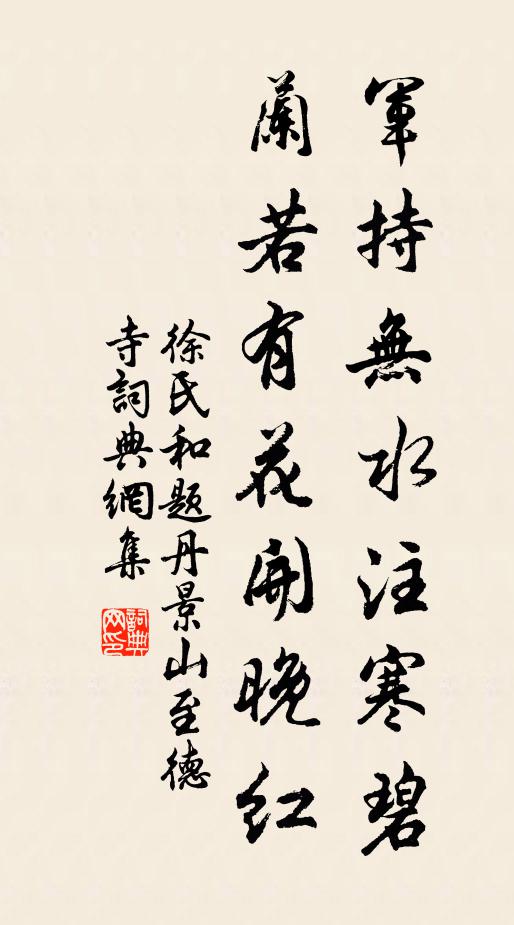 軍持無水注寒碧
蘭若有花開晚紅
徐氏和題丹景山至德
寺詞典網集
詞典
网印